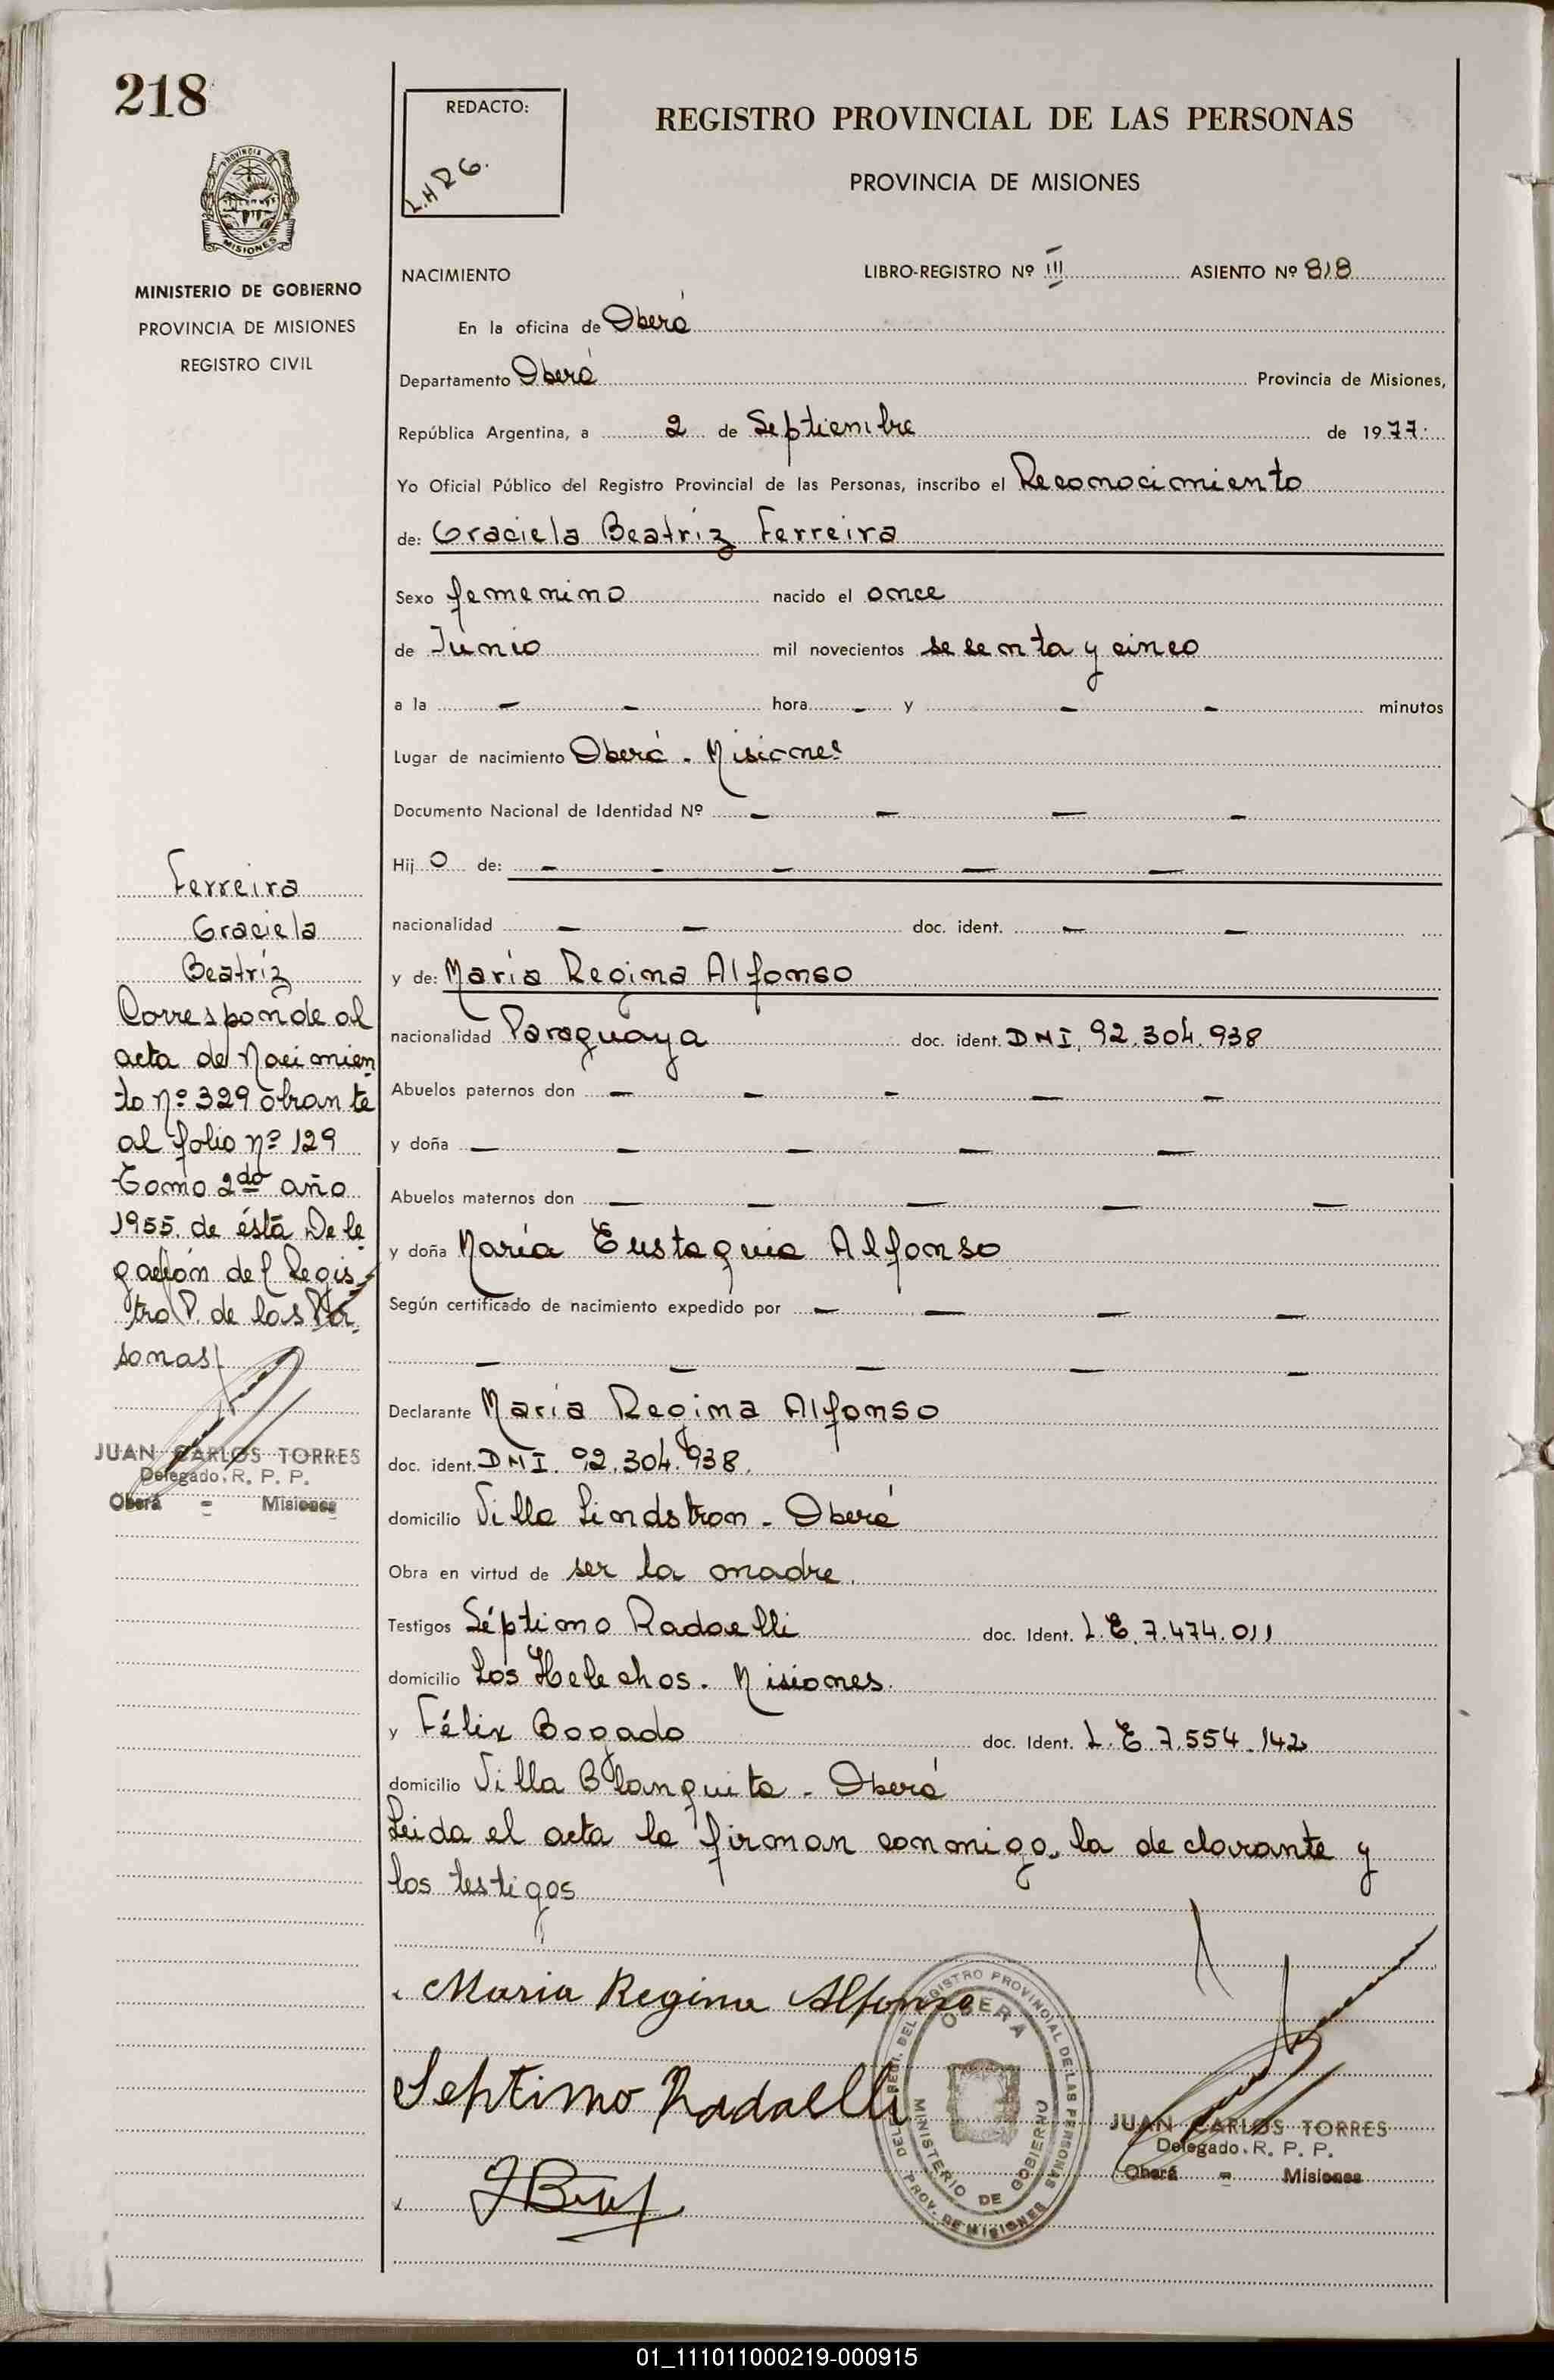 218
REDACTO:
L.H R G.
REGISTRO PROVINCIAL DE LAS PERSONAS
PROVINCIA DE MISIONES
PROVINCIA DE
MISIONES
MINISTERIO DE GOBIERNO
PROVINCIA DE MISIONES
REGISTRO CIVIL
NACIMIENTO LIBRO-REGISTRO Nº III ASIENTO Nº 818
En la oficina de Oberá
Departamento Oberá Provincia de Misiones,
República Argentina, a 2 de Septiembre de 1977.
Yo Oficial Público del Registro Provincial de las Personas, inscribo el Reconocimiento
de: Graciela Beatríz Ferreira
Sexo femenino nacido el once
de Junio mil novecientos sesenta y cinco
a la - - hora - y - - minutos
Lugar de nacimiento Oberá - Misiones
Documento Nacional de Identidad Nº - - - -
Hij o de: - - - - -
nacionalidad - - doc. ident. - -
y de: María Regina Alfonso
nacionalidad Paraguaya doc. ident. DNI. 92.304.938
Abuelos paternos don - - - - -
y doña - - - - -
Abuelos maternos don - - - - -
y doña María Eustaquia Alfonso
Según certificado de nacimiento expedido por - - - -
- - - - -
Declarante María Regina Alfonso
doc. ident. DNI. 92.304.938.
domicilio Villa Lindstron - Oberá
Obra en virtud de ser la madre.
Testigos Séptimo Radaelli doc. Ident. L.E. 7.474.011
domicilio Los Helechos. Misiones.
y Félix Bogado doc. Ident. L.E. 7.554.142
domicilio Villa Blanquita - Oberá
Leida el acta la firman conmigo, la declarante y
los testigos
Ferreira
Graciela
Beatríz
Corresponde al
acta de Nacimien
to nº 329 obrante
al folio nº 129
Tomo 2do año
1955. de ésta Dele
gación del Regis
tro P. de las Per
sonas
JUAN CARLOS TORRES
Delegado. R. P. P.
Oberá - Misiones
Maria Regina Alfonso
Septimo Radaelli
DELEG. DEL REGISTRO PROVINCIAL DE LAS PERSONAS
OBERÁ
MINISTERIO DE GOBIERNO
PROV. DE MISIONES
JUAN CARLOS TORRES
Delegado. R. P. P.
Oberá - Misiones
01_111011000219-000915